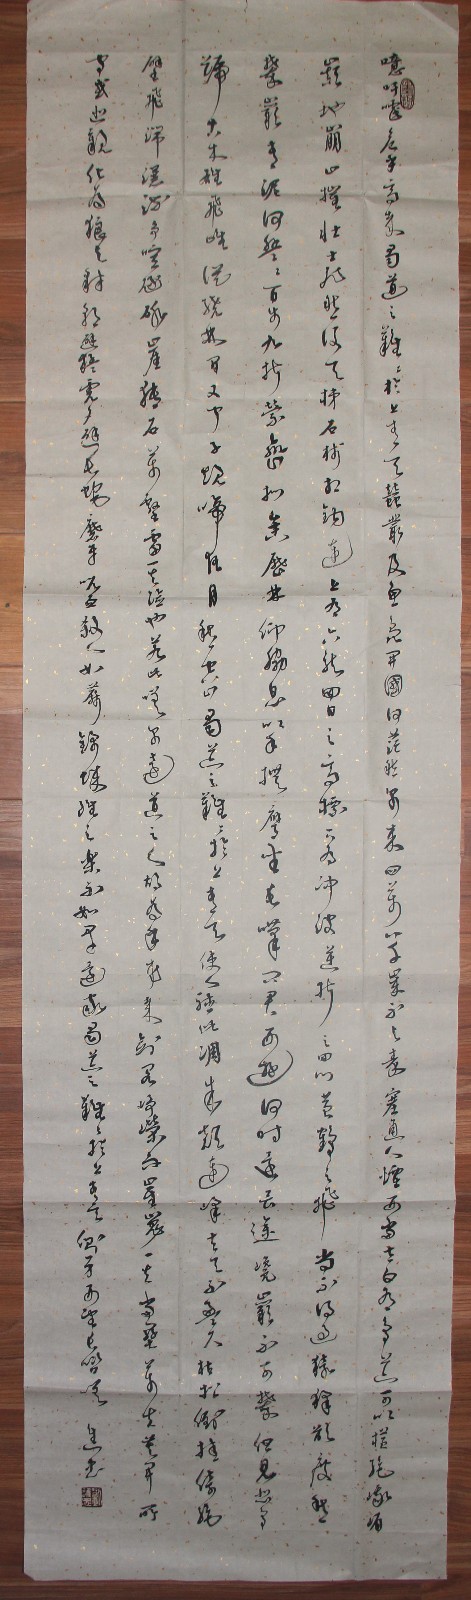 噫吁嚱危乎高哉蜀道之難〻於上青天蠶叢及魚鳧開國何茫然爾來四萬八千歲不與秦塞通人煙西當太白有鳥道可以橫絕峨眉
巔地崩山摧壯士死然後天梯石棧相鉤連上有六龍回日之高標下有冲波逆折之回川黃鶴之飛尚不得過猿猱欲度愁
攀巖青泥何盤〻百步九折縈巒捫參歷井仰脅息以手撫膺坐長嘆問君西遊何時還畏途巉巖不可攀但見悲鳥
號古木雄飛雌從繞林間又聞子規啼夜月愁空山蜀道之難〻於上青天使人聽此凋朱顏連峰去天不盈尺枯松倒掛倚絕
壁飛湍瀑流爭喧豗砯崖轉石萬壑雷其險也若此嗟爾遠道之人胡為乎來哉劍閣崢嶸而崔嵬一夫當關萬夫莫開所
守或匪親化為狼與豺朝避猛虎夕避長蛇磨牙吮血殺人如麻錦城雖云樂不如早還家蜀道之難〻於上青天側身西望長咨嗟